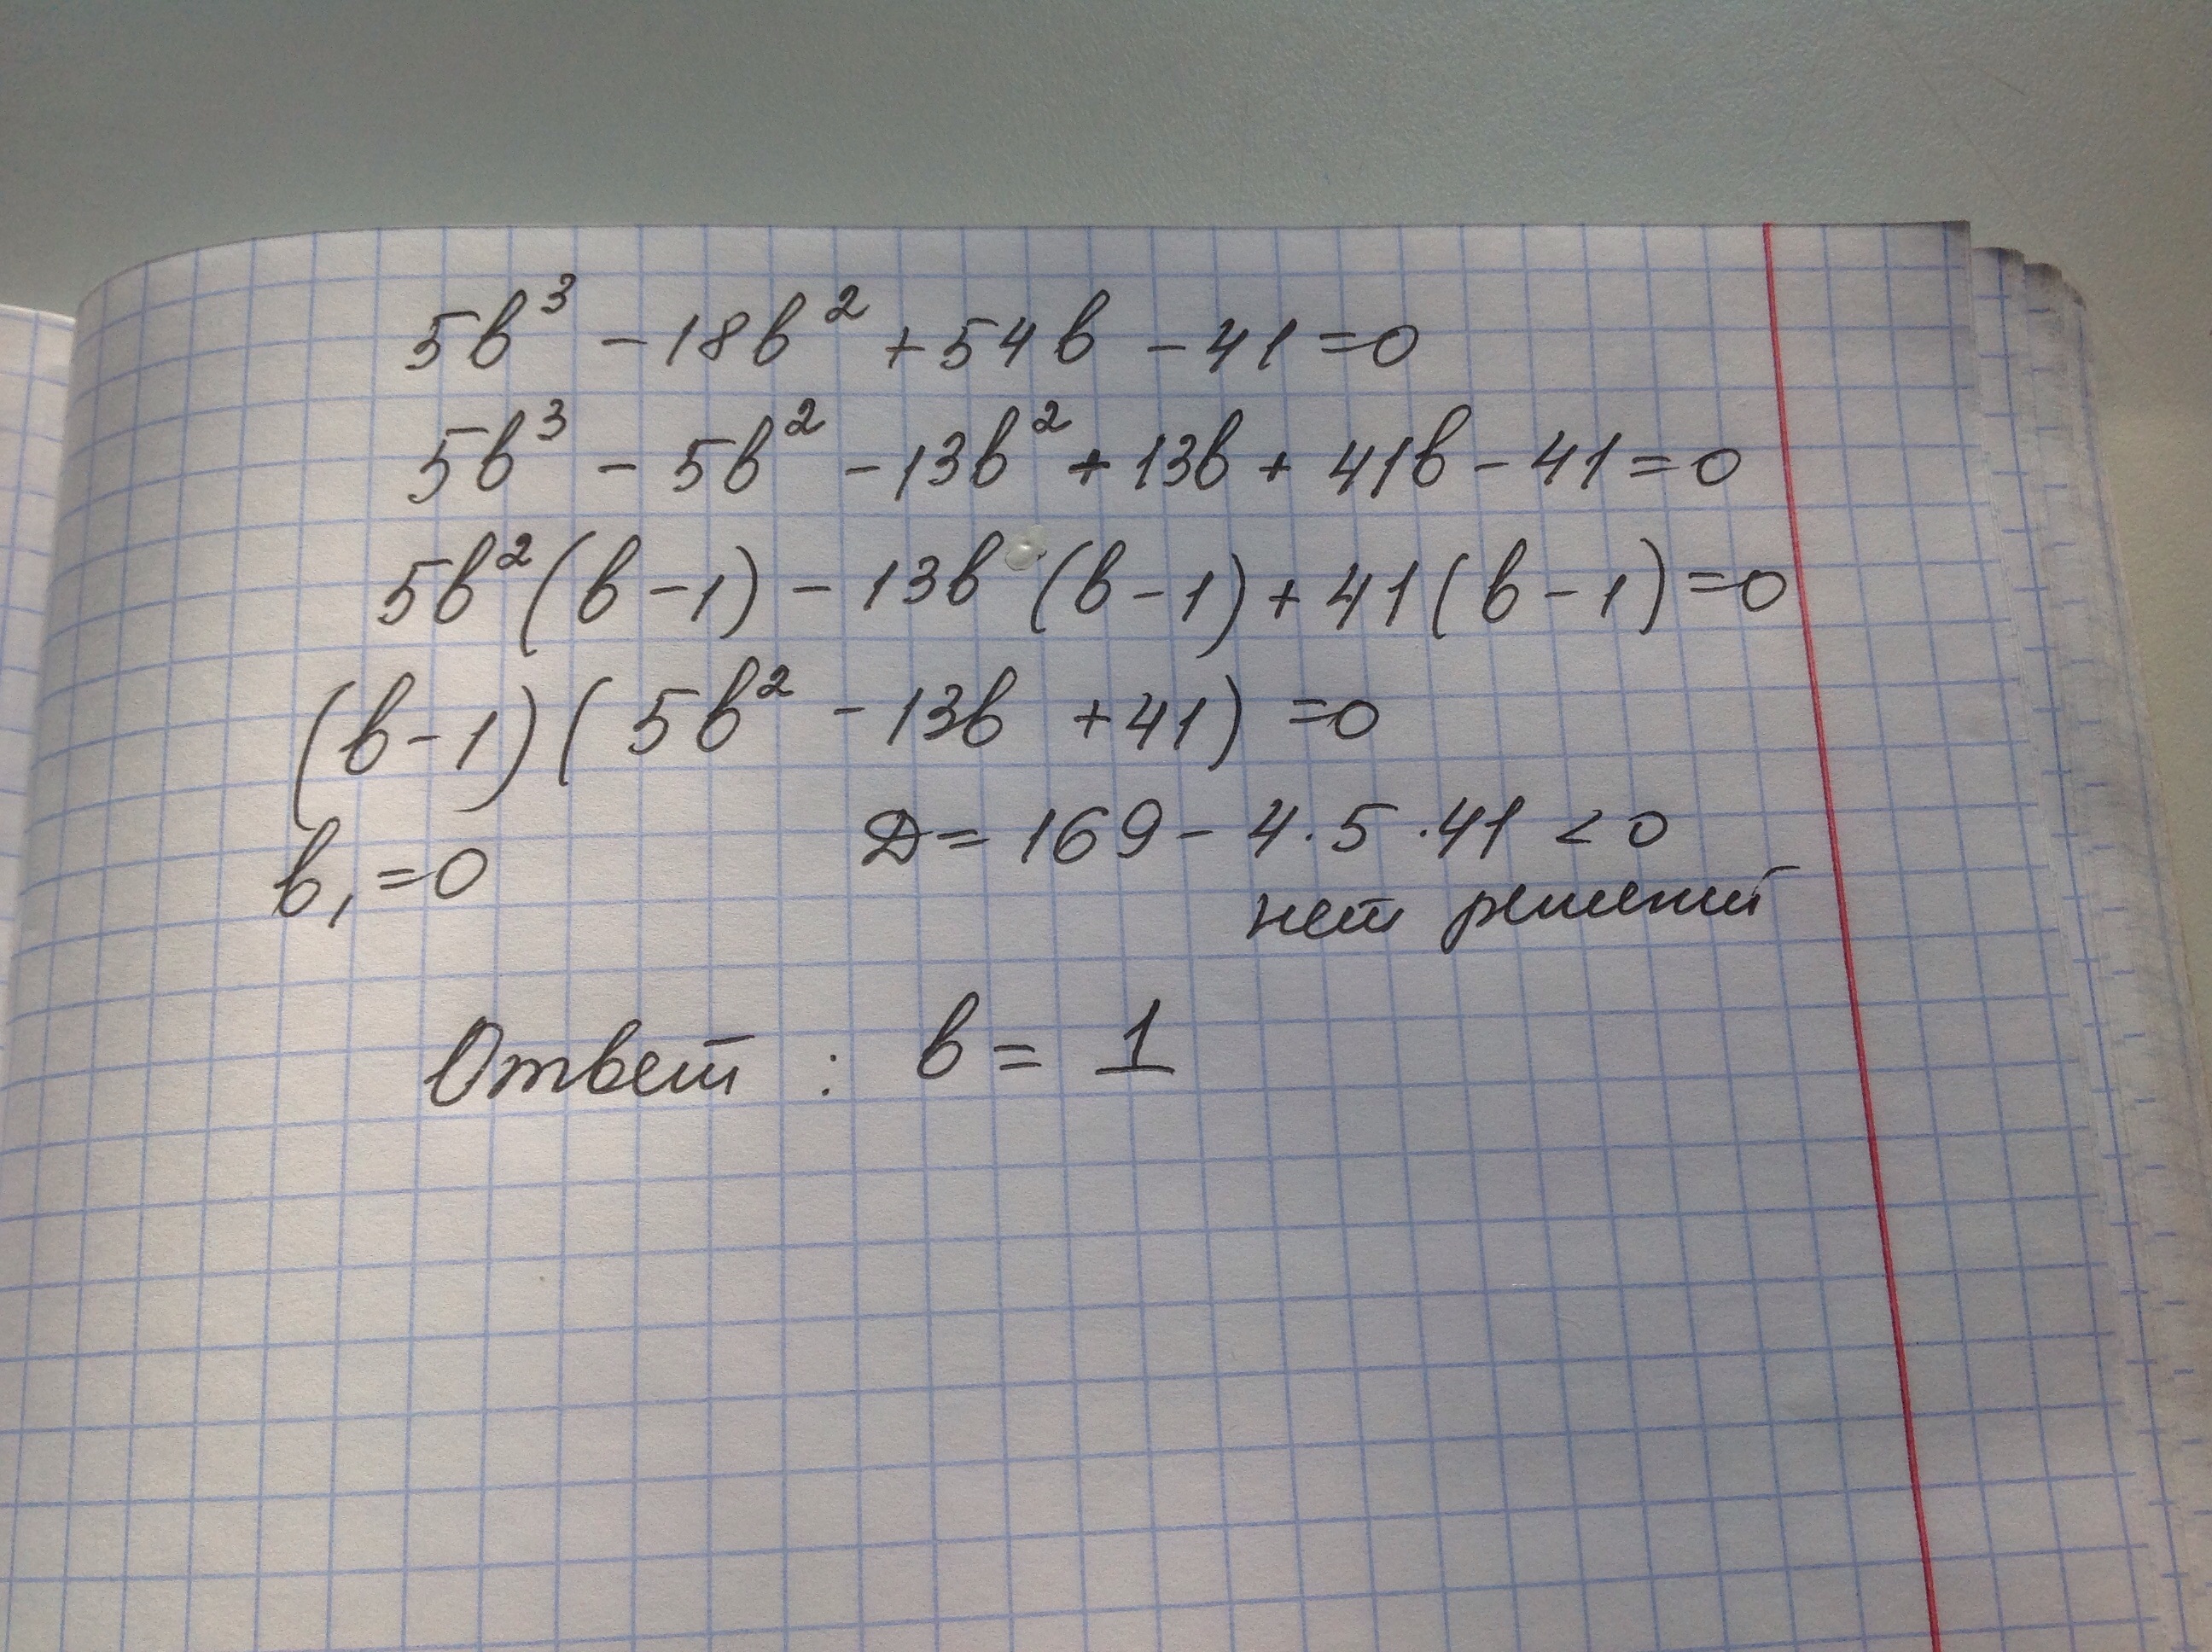 5b³ - 18b² + 54b - 41 = 0
5b³ - 5b² - 13b² + 13b + 41b - 41 = 0
5b² (b - 1) - 13b (b - 1) + 41 (b - 1) = 0
(b - 1) (5b² - 13b + 41) = 0
b₁ = 0 D = 169 - 4 · 5 · 41 < 0
нет решений
Ответ : b = 1